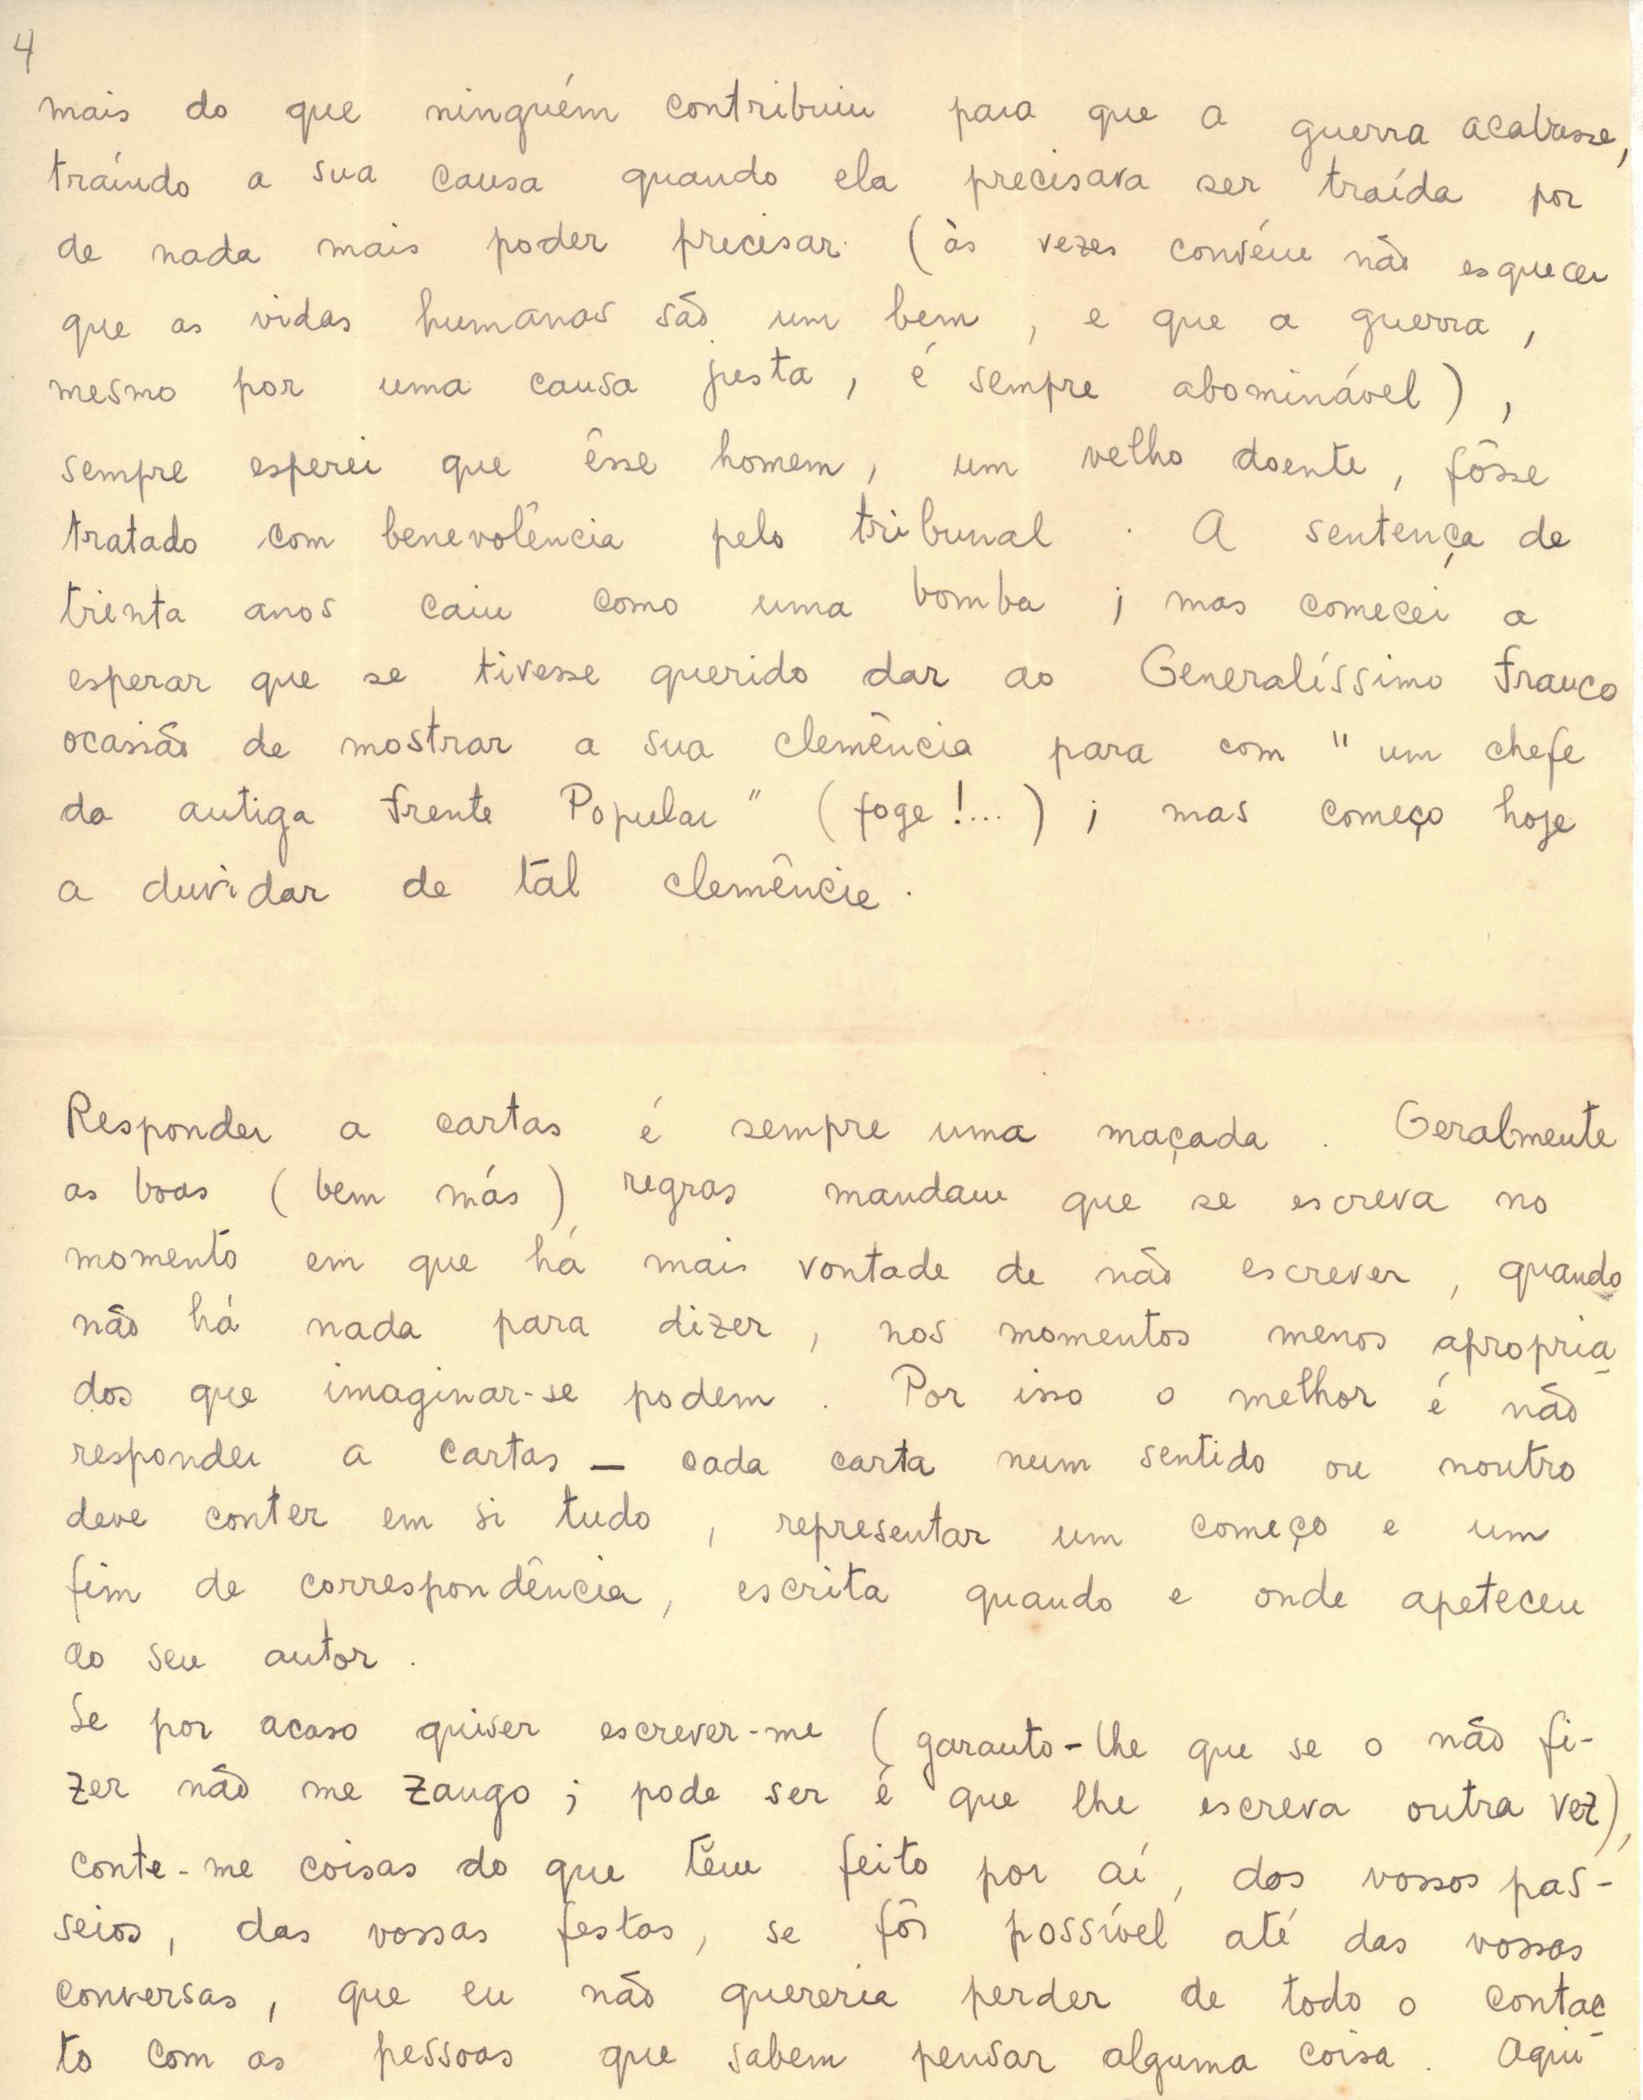 4
mais do que ninguém contribuiu para que a guerra acabasse,
traíndo a sua causa quando ela precisava ser traída por
de nada mais poder precisar (às vezes convém não esquecer
que as vidas humanas são um bem, e que a guerra,
mesmo por uma causa justa, é sempre abominável),
sempre esperei que êsse homem, um velho doente, fôsse
tratado com benevolência pelo tribunal. A sentença de
trinta anos caiu como uma bomba; mas começei a
esperar que se tivesse querido dar ao Generalíssimo Franco
ocasião de mostrar a sua clemência para com "um chefe
da antiga Frente Popular" (foge!...); mas começo hoje
a duvidar de tal clemência.
Responder a cartas é sempre uma maçada. Geralmente
as boas (bem más) regras mandam que se escreva no
momento em que há mais vontade de não escrever, quando
não há nada para dizer, nos momentos menos apropria-
dos que imaginar-se podem. Por isso o melhor é não
responder a cartas — cada carta num sentido ou noutro
deve conter em si tudo, representar um começo e um
fim de correspondência, escrita quando e onde apeteceu
ao seu autor.
Se por acaso quiser escrever-me (garanto-lhe que se o não fi-
zer não me zango; pode ser é que lhe escreva outra vez),
conte-me coisas do que têm feito por aí, dos vossos pas-
seios, das vossas festas, se fôr possível até das vossas
conversas, que eu não quereria perder de todo o contac-
to com as pessoas que sabem pensar alguma coisa. Aqui